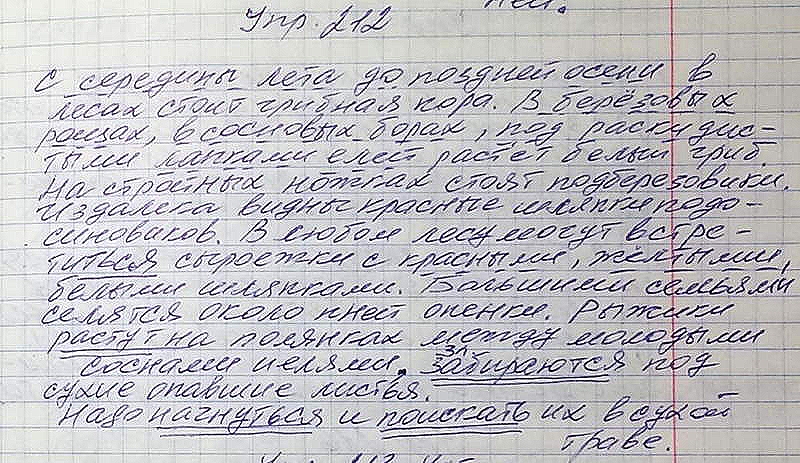 ней.
Упр. 212
С середины лета до поздней осени в
лесах стоит грибная пора. В берёзовых
рощах, в сосновых борах, под раскидис-
тыми лапками елей растёт белый гриб.
На стройных ножках стоят подберезовики.
Издалека видны красные шляпки подо-
синовиков. В любом лесу могут встре-
титься сыроежки с красными, жёлтыми,
белыми шляпками. Большими семьями
селятся около пней опенки. Рыжики
растут на полянках между молодыми
соснами и елями, забираются под
сухие опавшие листья.
Надо нагнуться и поискать их в сухой
траве.